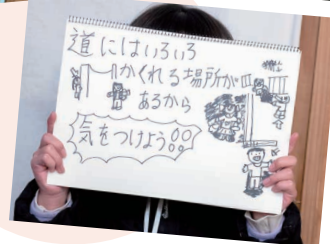 道にはいろいろ
かくれる場所が
あるから
気をつけよう!!